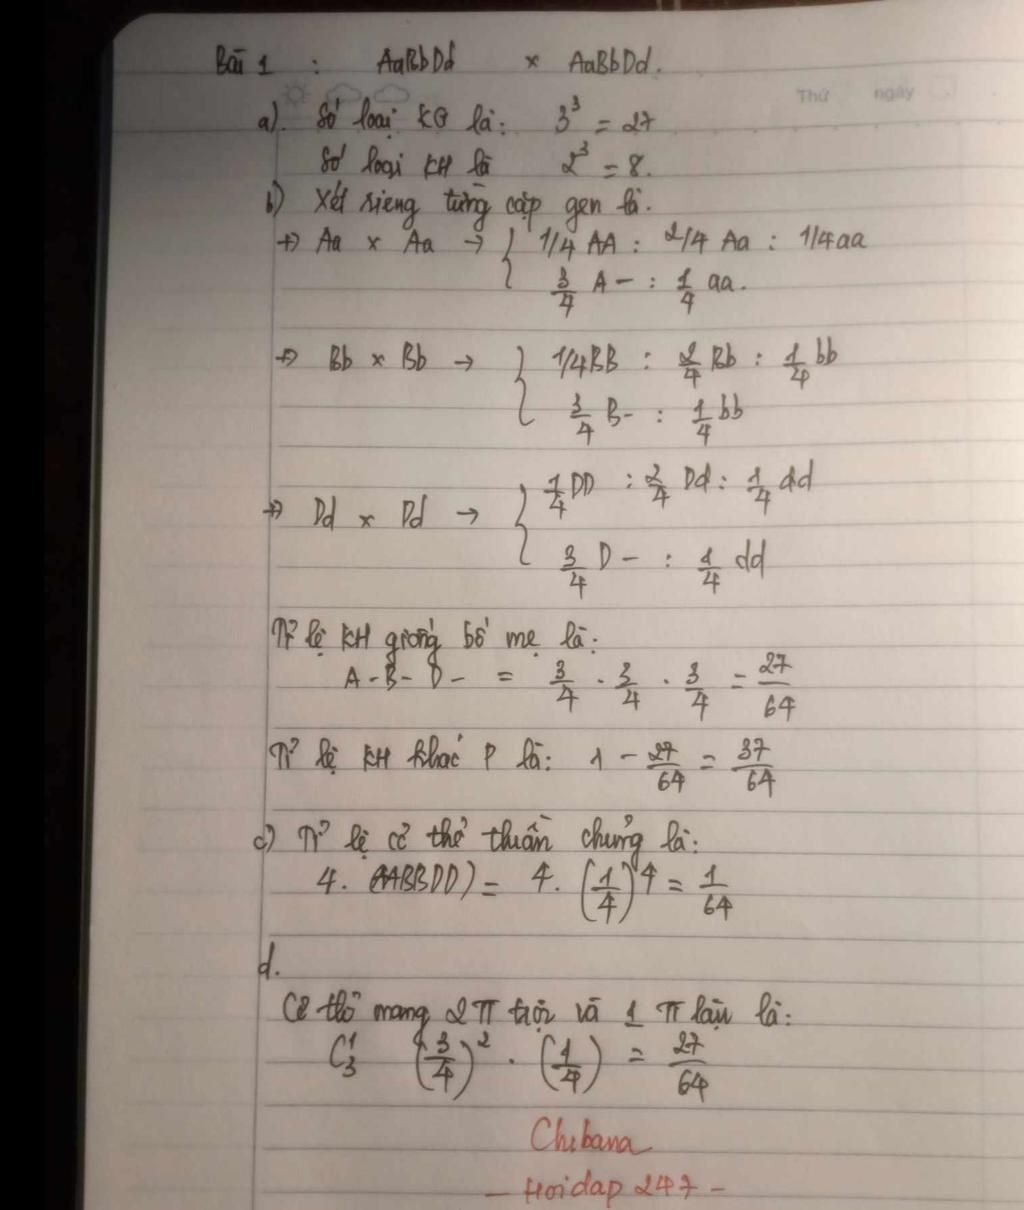 Bài 1 : AaBbDd × AaBbDd.
Thứ ngày
a). Số loại KG là: 3^3 = 27
Số loại KH là 2^3 = 8.
b) Xét riêng từng cặp gen là.
+) Aa × Aa → { 1/4 AA : 2/4 Aa : 1/4aa
3/4 A- : 1/4 aa.
+) Bb × Bb → { 1/4BB : 2/4 Bb : 1/4 bb
3/4 B- : 1/4 bb
+) Dd × Dd → { 1/4 DD : 2/4 Dd : 1/4 dd
3/4 D- : 1/4 dd
Tỉ lệ KH giống bố mẹ là:
A-B-D- = 3/4 . 3/4 . 3/4 = 27/64
Tỉ lệ KH khác P là: 1 - 27/64 = 37/64
c) Tỉ lệ cơ thể thuần chủng là:
4. (AABBDD) = 4. (1/4)^4 = 1/64
d.
Cơ thể mang 2 TT trội và 1 TT lặn là:
C^1_3 (3/4)^2 . (1/4) = 27/64
Chibana
- Hoidap 247 -